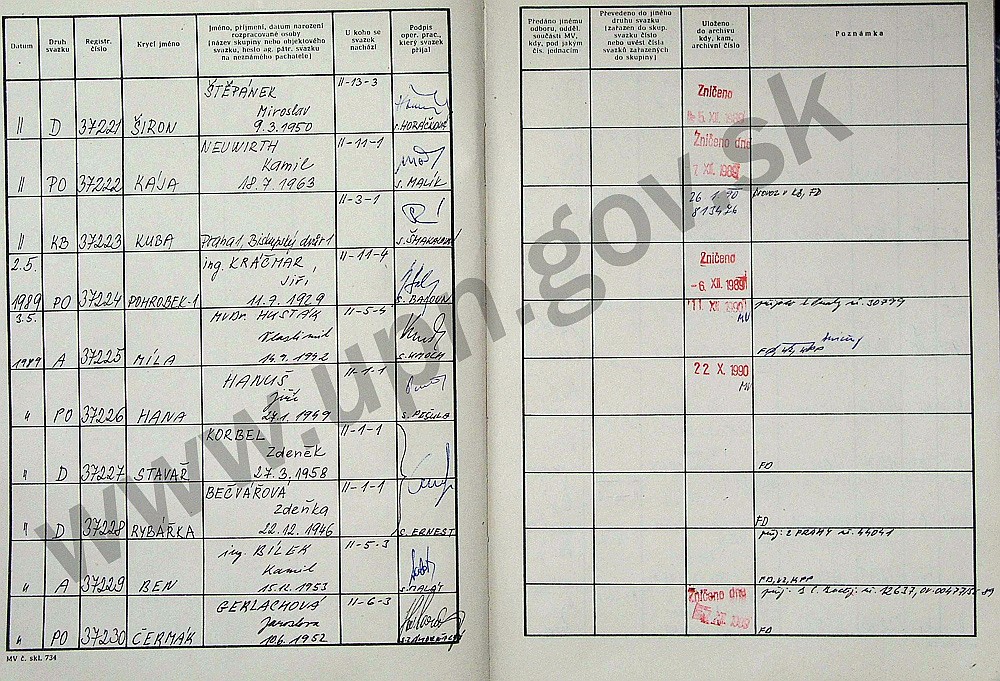 Datum
Druh svazku
Registr. číslo
Krycí jméno
Jméno, příjmení, datum narození
rozpracované osoby
(název skupiny nebo objektového
svazku, heslo ag. pátr. svazku
na neznámého pachatele)
U koho se
svazek
nachází
Podpis
oper. prac.,
který svazek
přijal
Předáno jinému
odboru, odděl.
součásti MV,
kdy, pod jakým
čís. jednacím
Převedeno do jiného
druhu svazku
(zařazen do skup.
svazku číslo
nebo uvést čísla
svazků zařazených
do skupiny)
Uloženo
do archivu
kdy, kam,
archivní číslo
Poznámka
ŠTĚPÁNEK II-13-3
Miroslav
" D 37221 ŠIRON 9.3.1950 s. HORÁČKOVÁ
Zničeno
5. XII. 1989
NEUWIRTH II-11-1
Kamil
" PO 37222 KÁJA 18.7.1963 s. MALÍK
Zničeno dne
7. XII. 1989
II-3-1
" KB 37223 KUBA Praha 1, Biskupský dvůr 1
26 1 90
813426
provoz v KB, FD
2.5. ing. KRÁČMÁR, II-11-4
Jiří
1989 PO 37224 POHROBEK-1 11.7.1929 s. BAROUN
Zničeno
-6. XII. 1989
3.5. MVDr. HUSŤÁK II-5-4
Vlastimil
1989 A 37225 MÍLA 14.9.1942
11 XII. 1990
MV
HANUŠ II-1-1
Jiří
" PO 37226 HANA 27.1.1949 s. PEČULA
22 X. 1990
MV
KORBEL II-1-1
Zdeněk
" D 37227 STAVAŘ 27.3.1958
FD
BEČVÁŘOVÁ II-1-1
Zdeňka
" D 37228 RYBÁŘKA 22.12.1946 s. ERNEST
FD
ing. BÍLEK II-5-3
Kamil
" A 37229 BEN 15.12.1953 s. MALÁT
přij. z PRAHY č. 44041
GERLACHOVÁ II-6-3
Jaroslava
" PO 37230 ČERMÁK 10.6.1952
Zničeno dne
FD
MV č. skl. 734
www.upn.gov.sk